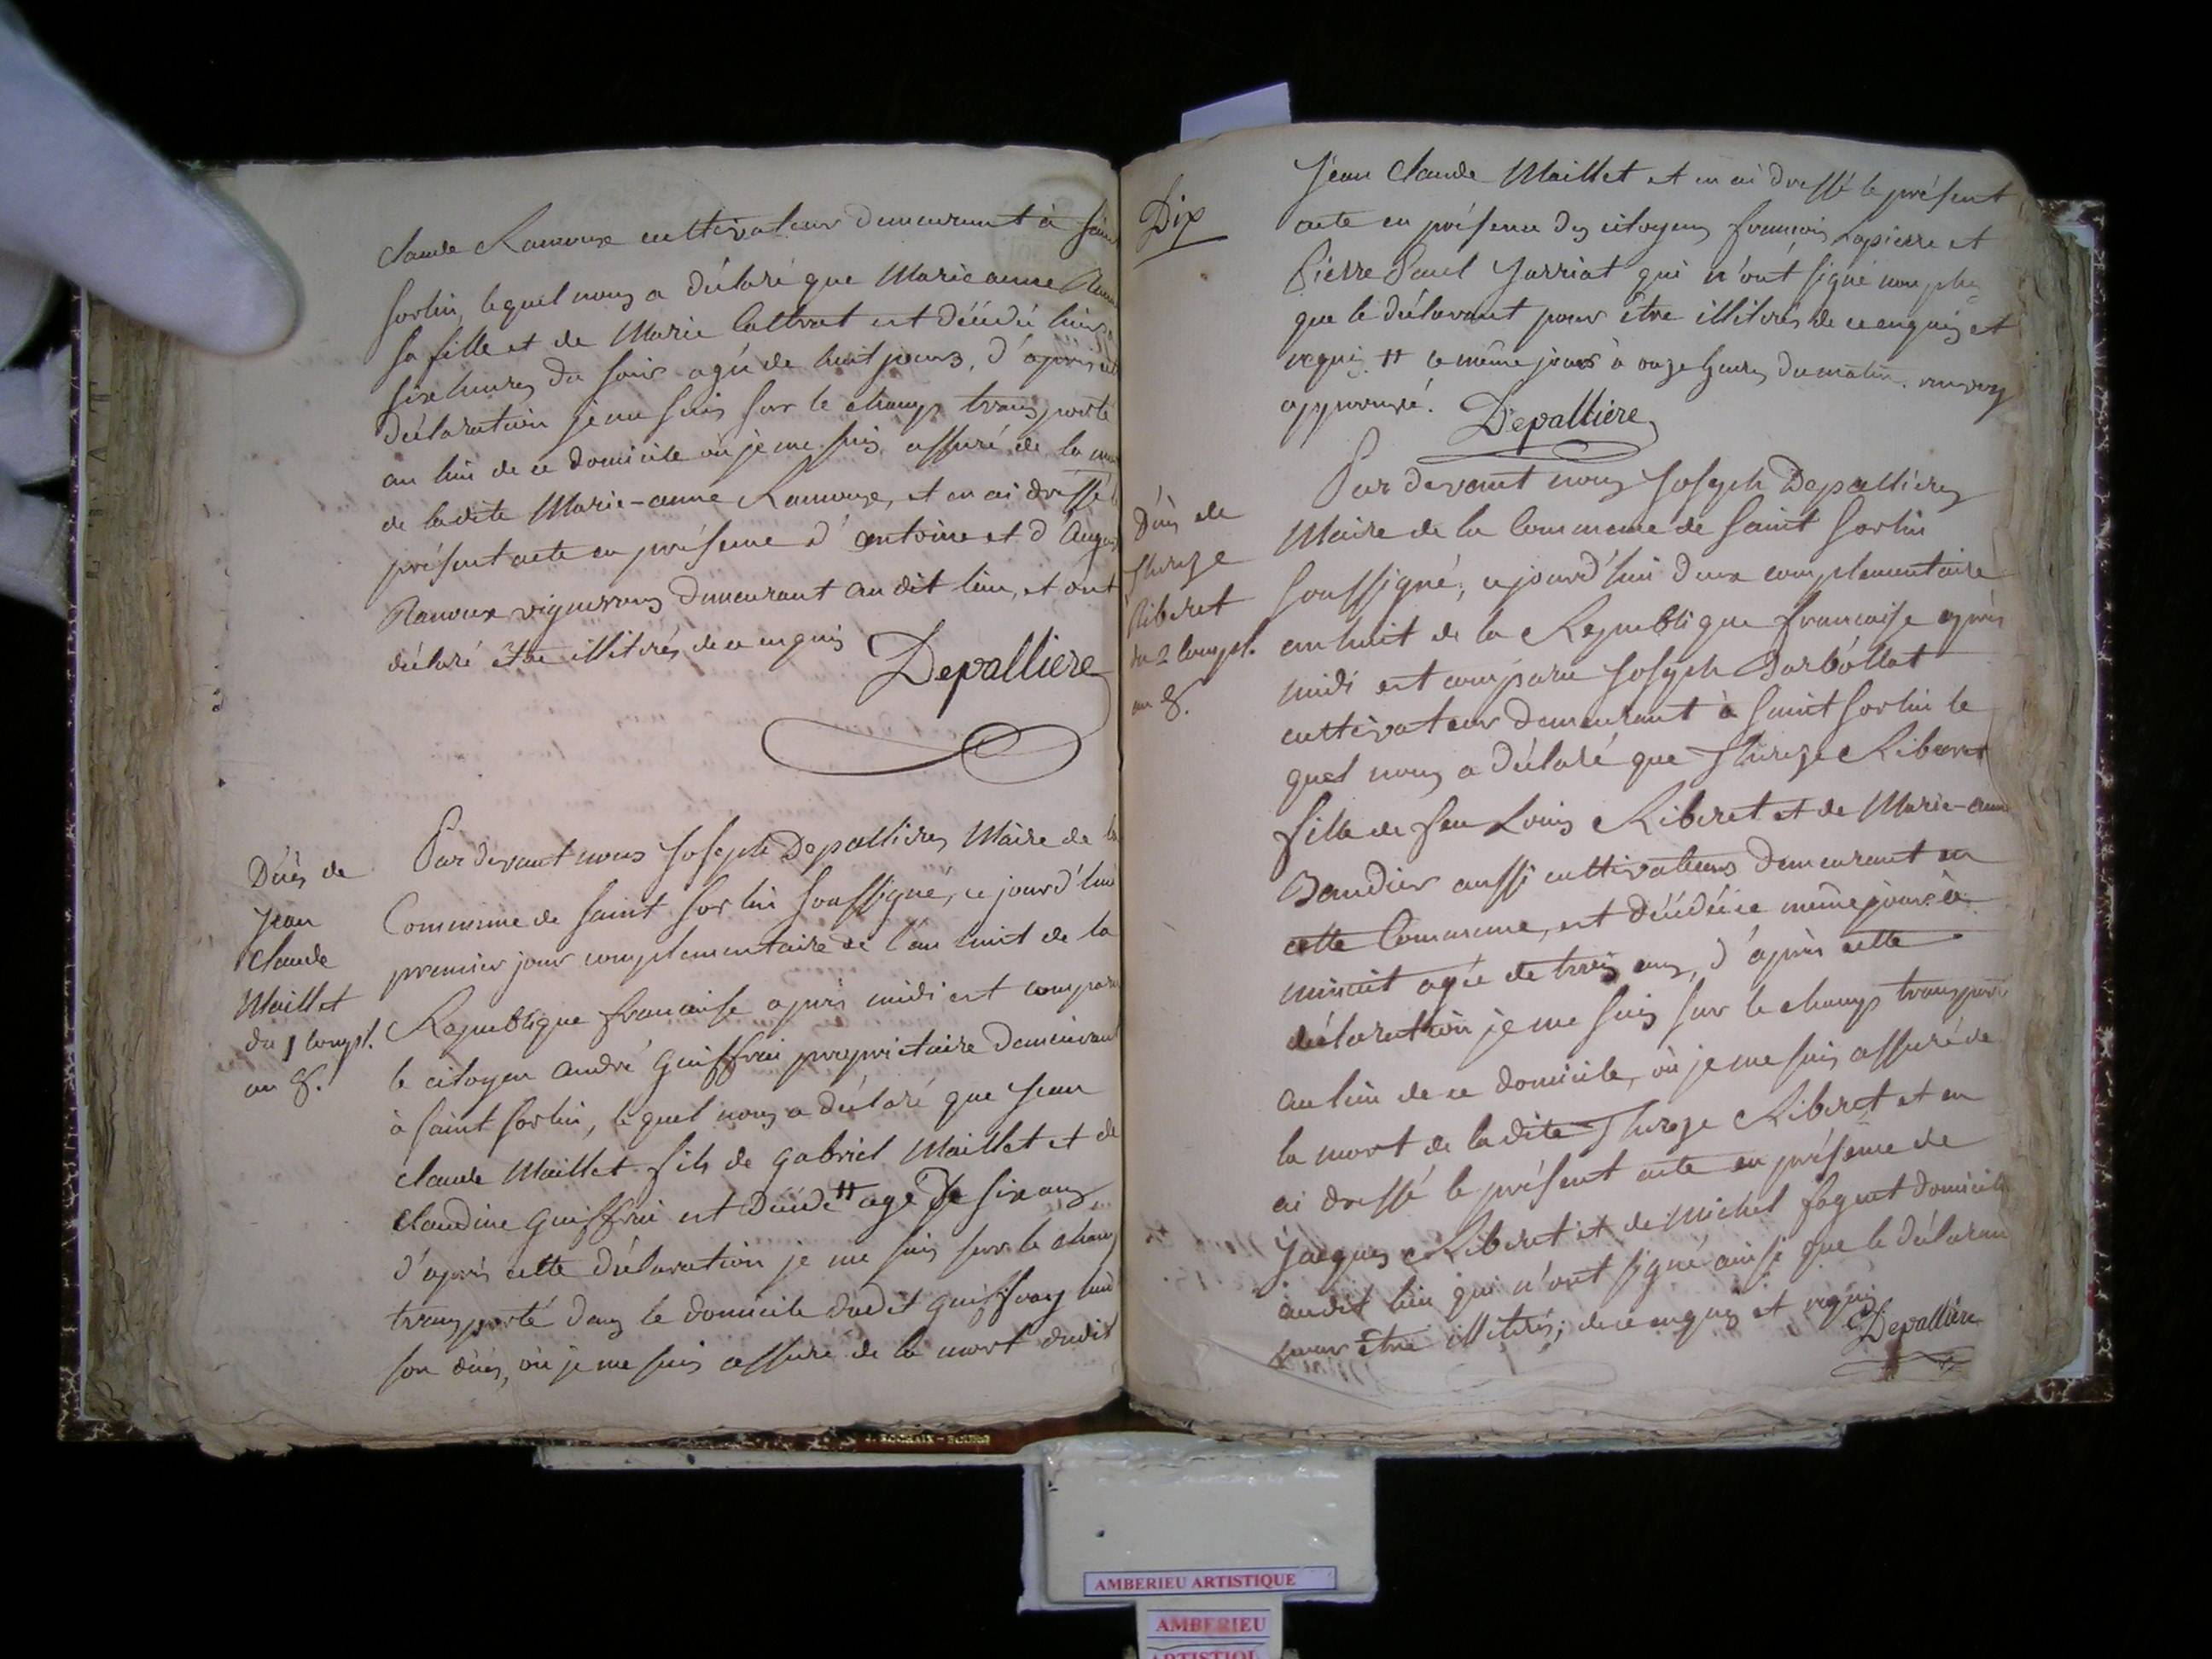 claude Ramoux cultivateur demeurant à Saint
Sorlin, lequel nous a déclaré que Marie anne Ramoux
sa fille et de Marie est décédée hier
six heures du soir agée de huit jours, d'après cette
déclaration je me suis sur le champ transporté
au lieu de ce domicile où je me suis assuré de la mort
de ladite Marie-anne Ramoux, et en ai dressé le
présent acte en présence d'antoine et d'
Ramoux vignerons demeurant au dit lieu, et ont
déclaré être illiterés de ce enquis
Depalliere
Décès de
Jean
Claude
Maillet
du 1 compl.
an 8.
Par devant nous Joseph Depallieres Maire de la
Commune de saint Sorlin soussigné, ce jourd'hui
premier jour complementaire de l'an huit de la
Republique francaise après midi est comparu
le citoyen andré Guiffrai proprietaire demeurant
à saint Sorlin, lequel nous a déclaré que Jean
claude Maillet fils de gabriel Maillet et de
claudine guiffrai est décédé # agé de six ans
d'après cette déclaration je me suis sur le champ
transporté dans le domicile dudit guiffray lieu
son décès, où je me suis assuré de la mort dudit
Dix
Jean Claude Maillet et en ai dressé le présent
acte en présence des citoyens françois Lapierre et
Pierre Paul Jarriat qui n'ont signé non plus
que le déclarant pour être illiterés de ce enquis et
requis. # ce même jour à onze heures du matin. renvoy
approuvé.
Depalliere
Décès de
therese
Riberet
du 2 compl.
an 8.
Par devant nous Joseph Depallieres
Maire de la Commune de saint Sorlin
soussigné, ce jourd'hui deux complementaire
an huit de la Republique francaise après
midi est comparu Joseph Barbollat
cultivateur demeurant à saint Sorlin le
quel nous a déclaré que Therese Riberet
fille de feu Louis Riberet et de Marie-anne
Baudier aussi cultivateurs demeurant en
cette Commune, est décédée ce même jour à
minuit agée de trois ans, d'après cette
déclaration je me suis sur le champ transporté
au lieu de ce domicile, où je me suis assuré de
la mort de ladite Therese Riberet et en
ai dressé le présent acte en présence de
Jacques Riberet et de Michel fognet domiciliés
audit lieu qui n'ont signé ainsi que le déclarant
pour être illiterés, de ce enquis et requis
Depalliere
J. ROCHAIX - BOURG
AMBERIEU ARTISTIQUE
AMBERIEU
ARTISTIQUE